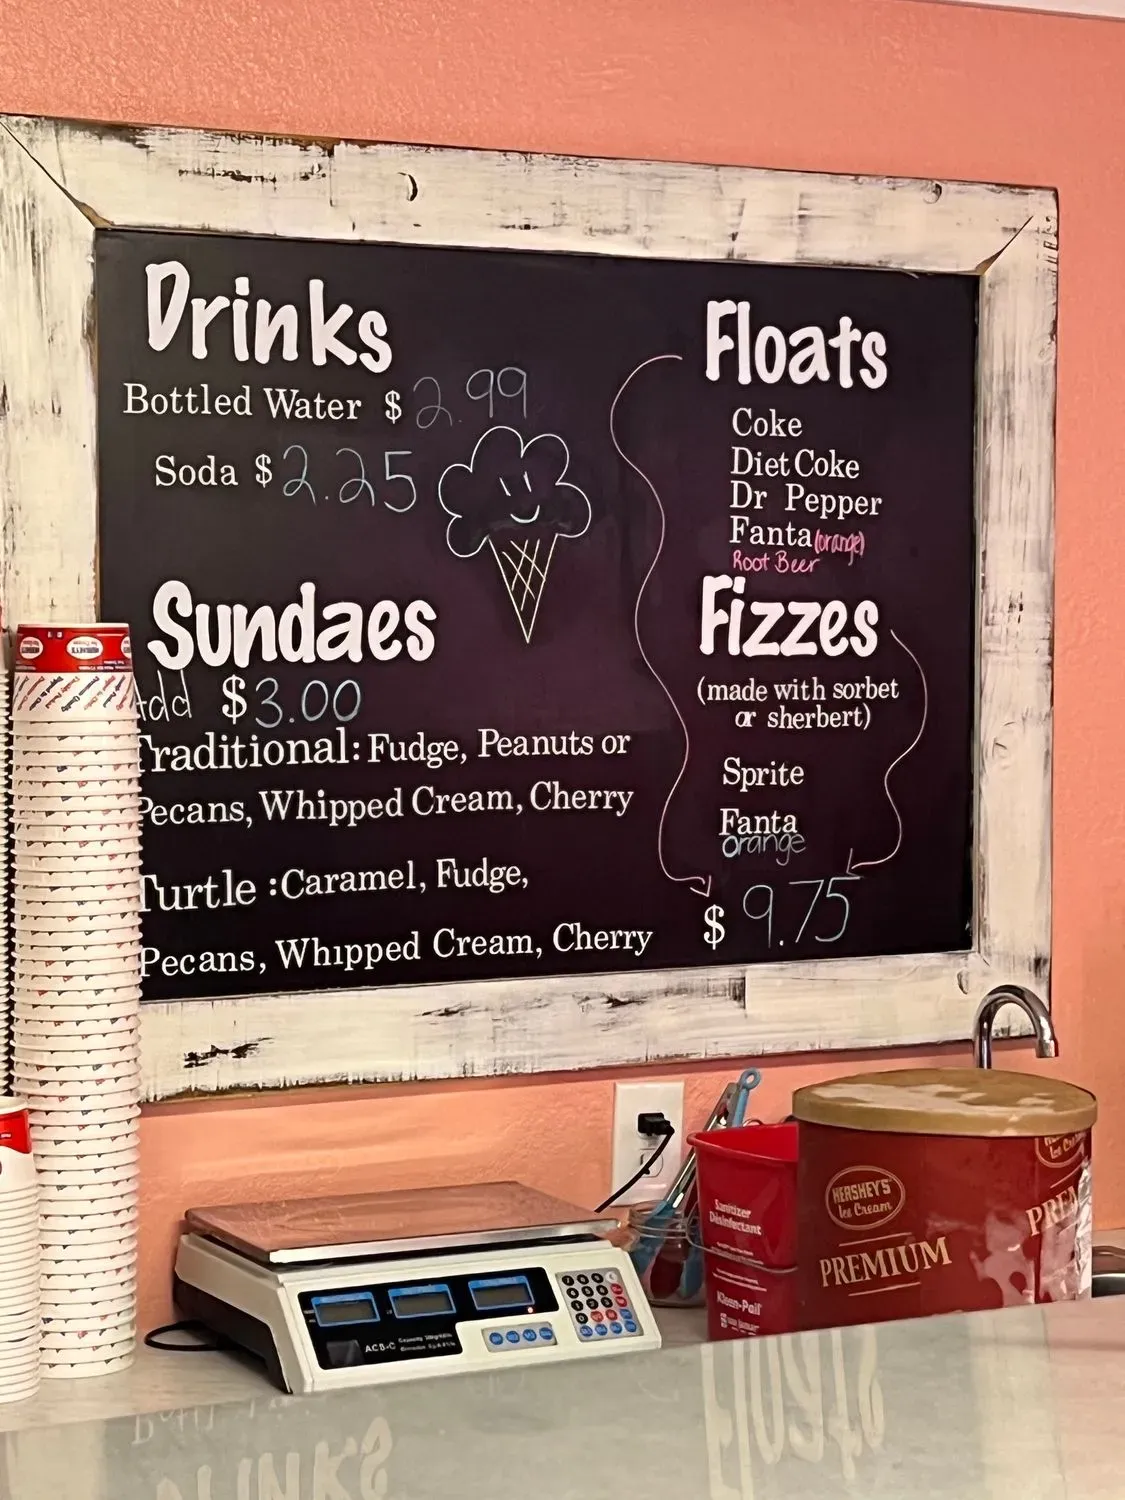 Drinks
Bottled Water $ 2.99
Soda $ 2.25
Sundaes
Add $ 3.00
Traditional: Fudge, Peanuts or
Pecans, Whipped Cream, Cherry
Turtle : Caramel, Fudge,
Pecans, Whipped Cream, Cherry
Floats
Coke
Diet Coke
Dr Pepper
Fanta (orange)
Root Beer
Fizzes
(made with sorbet
or sherbert)
Sprite
Fanta
orange
$ 9.75
HERSHEY'S
Ice Cream
PREMIUM
Ice Cream
Sanitizer
Disinfectant
Kleen-Pail
ACB-C